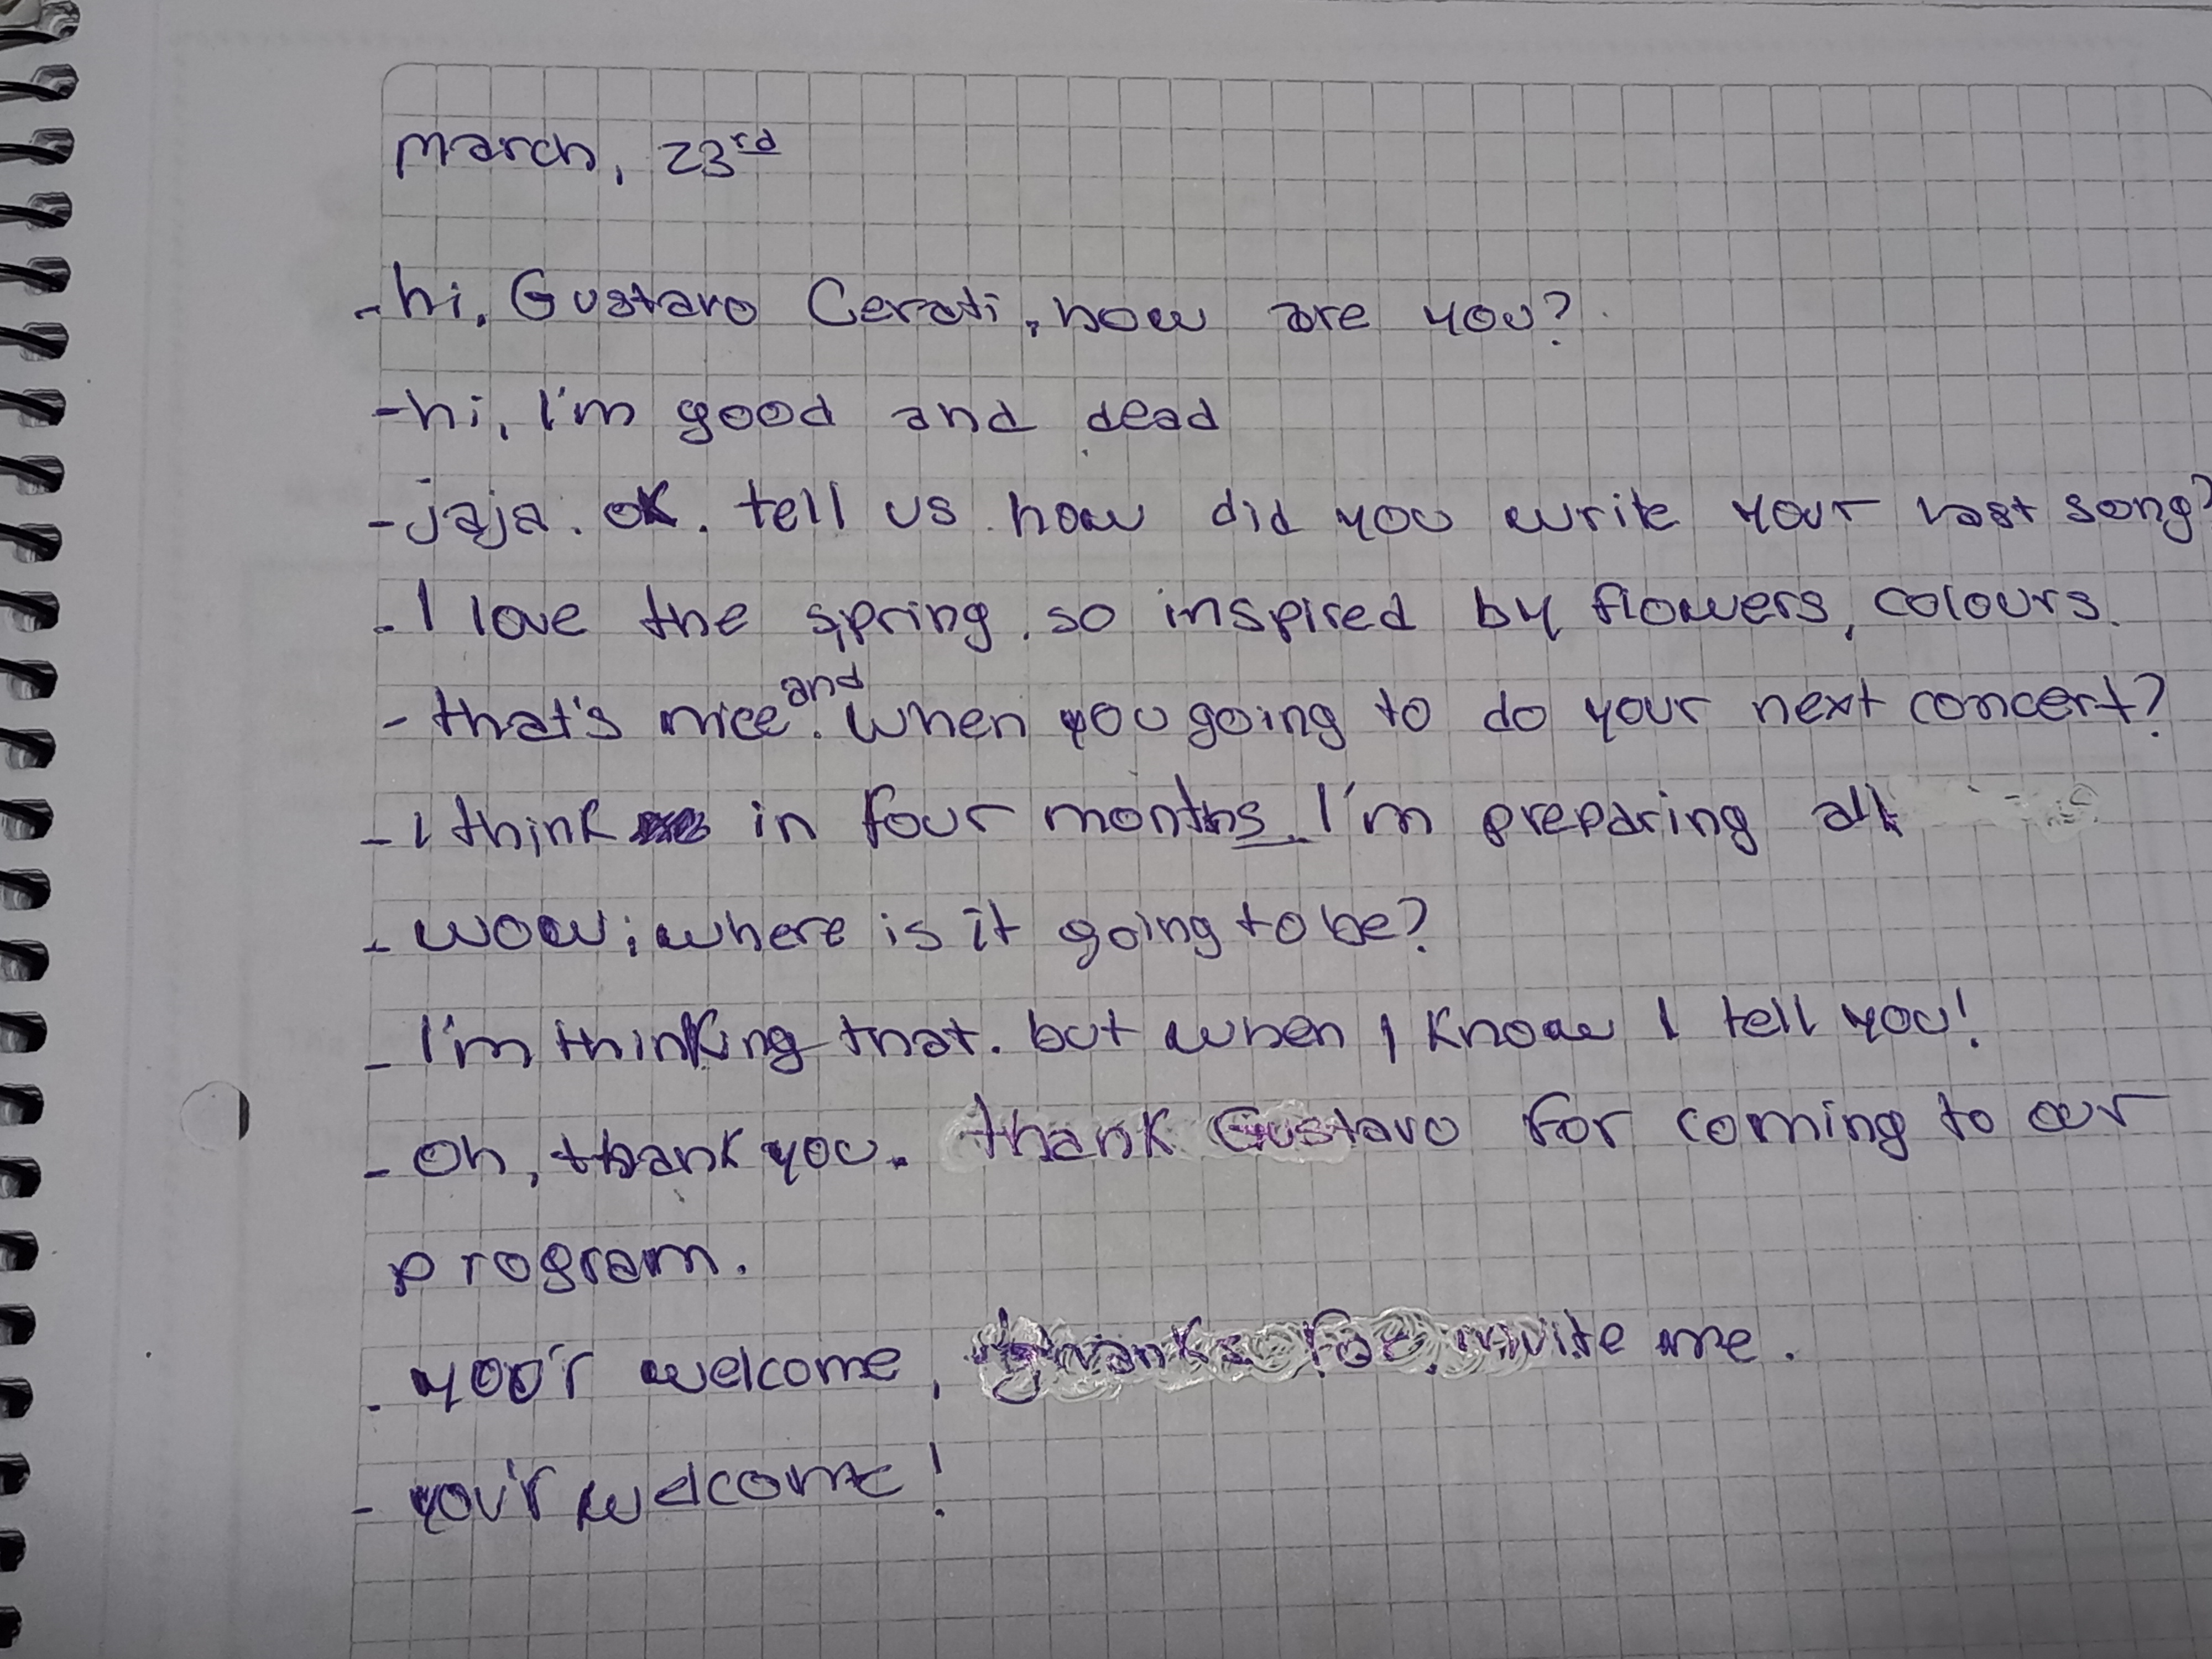 march, 23rd
-hi, Gustavo Cerati, how are you?
-hi, I'm good and dead
-jaja. ok. tell us how did you write your last song?
-I love the spring, so inspired by flowers, colours.
-that's nice. and when you going to do your next concert?
-I think in four months. I'm preparing all
-wow; where is it going to be?
-I'm thinking that. but when I know I tell you!
-Oh, thank you. thank Gustavo for coming to our
program.
. you'r welcome, thanks for invite me.
-you'r welcome!